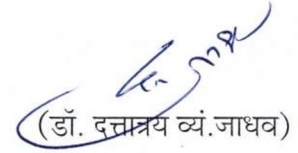 (डॉ. दत्तात्रय व्यं.जाधव)